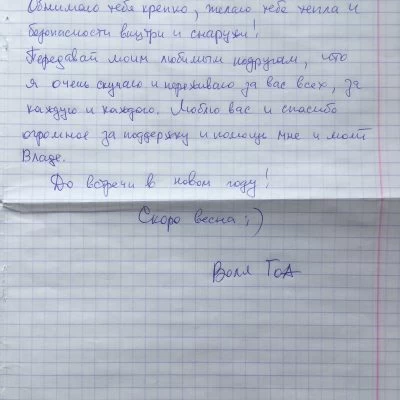 Обнимаю тебя крепко, желаю тебе тепла и
безопасности внутри и снаружи!
Передавай моим любимым подругам, что
я очень скучаю и переживаю за вас всех, за
каждую и каждого. Люблю вас и спасибо
огромное за поддержку и помощь мне и моей
Владе.
До встречи в новом году!
Скоро весна ;)
Воля